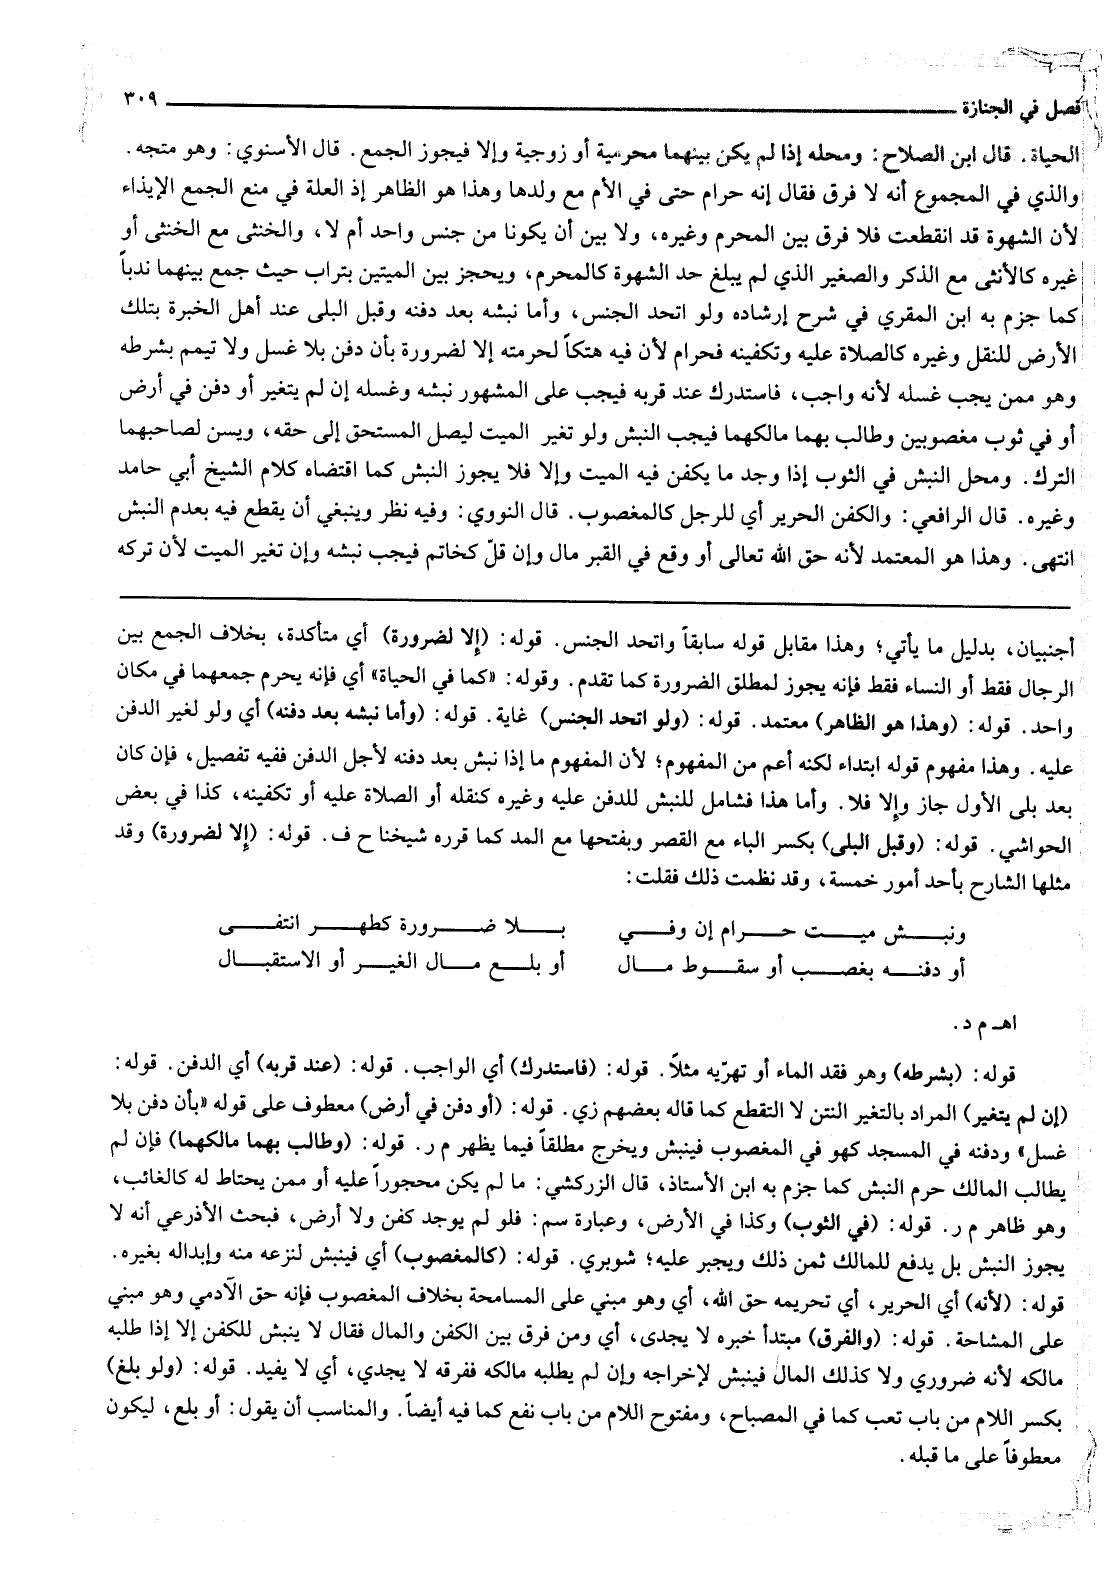 فصل في الجنازة ٣٠٩
الحياة. قال ابن الصلاح: ومحله إذا لم يكن بينهما محرمية أو زوجية وإلا فيجوز الجمع. قال الأسنوي: وهو متجه.
والذي في المجموع أنه لا فرق فقال إنه حرام حتى في الأم مع ولدها وهذا هو الظاهر إذ العلة في منع الجمع الإيذاء
لأن الشهوة قد انقطعت فلا فرق بين المحرم وغيره، ولا بين أن يكونا من جنس واحد أم لا، والخنثى مع الخنثى أو
غيره كالأنثى مع الذكر والصغير الذي لم يبلغ حد الشهوة كالمحرم، ويحجز بين الميتين بتراب حيث جمع بينهما ندباً
كما جزم به ابن المقري في شرح إرشاده ولو اتحد الجنس، وأما نبشه بعد دفنه وقبل البلى عند أهل الخبرة بتلك
الأرض للنقل وغيره كالصلاة عليه وتكفينه فحرام لأن فيه هتكاً لحرمته إلا لضرورة بأن دفن بلا غسل ولا تيمم بشرطه
وهو ممن يجب غسله لأنه واجب، فاستدرك عند قربه فيجب على المشهور نبشه وغسله إن لم يتغير أو دفن في أرض
أو في ثوب مغصوبين وطالب بهما مالكهما فيجب النبش ولو تغير الميت ليصل المستحق إلى حقه، ويسن لصاحبهما
الترك. ومحل النبش في الثوب إذا وجد ما يكفن فيه الميت وإلا فلا يجوز النبش كما اقتضاه كلام الشيخ أبي حامد
وغيره. قال الرافعي: والكفن الحرير أي للرجل كالمغصوب. قال النووي: وفيه نظر وينبغي أن يقطع فيه بعدم النبش
انتهى. وهذا هو المعتمد لأنه حق الله تعالى أو وقع في القبر مال وإن قلّ كخاتم فيجب نبشه وإن تغير الميت لأن تركه
أجنبيان، بدليل ما يأتي؛ وهذا مقابل قوله سابقاً واتحد الجنس. قوله: (إلا لضرورة) أي متأكدة، بخلاف الجمع بين
الرجال فقط أو النساء فقط فإنه يجوز لمطلق الضرورة كما تقدم. وقوله: «كما في الحياة» أي فإنه يحرم جمعهما في مكان
واحد. قوله: (وهذا هو الظاهر) معتمد. قوله: (ولو اتحد الجنس) غاية. قوله: (وأما نبشه بعد دفنه) أي ولو لغير الدفن
عليه. وهذا مفهوم قوله ابتداء لكنه أعم من المفهوم؛ لأن المفهوم ما إذا نبش بعد دفنه لأجل الدفن ففيه تفصيل، فإن كان
بعد بلى الأول جاز وإلا فلا. وأما هذا فشامل للنبش للدفن عليه وغيره كنقله أو الصلاة عليه أو تكفينه، كذا في بعض
الحواشي. قوله: (وقبل البلى) بكسر الباء مع القصر وبفتحها مع المد كما قرره شيخنا ح ف. قوله: (إلا لضرورة) وقد
مثلها الشارح بأحد أمور خمسة، وقد نظمت ذلك فقلت:
ونبش ميت حرام إن وفي بلا ضرورة كطهر انتفى
أو دفنه بغصب أو سقوط مال أو بلع مال الغير أو الاستقبال
اهـ م د.
قوله: (بشرطه) وهو فقد الماء أو تهرّيه مثلاً. قوله: (فاستدرك) أي الواجب. قوله: (عند قربه) أي الدفن. قوله:
(إن لم يتغير) المراد بالتغير النتن لا التقطع كما قاله بعضهم زي. قوله: (أو دفن في أرض) معطوف على قوله «بأن دفن بلا
غسل» ودفنه في المسجد كهو في المغصوب فينبش ويخرج مطلقاً فيما يظهر م ر. قوله: (وطالب بهما مالكهما) فإن لم
يطالب المالك حرم النبش كما جزم به ابن الأستاذ، قال الزركشي: ما لم يكن محجوراً عليه أو ممن يحتاط له كالغائب،
وهو ظاهر م ر. قوله: (في الثوب) وكذا في الأرض، وعبارة سم: فلو لم يوجد كفن ولا أرض، فبحث الأذرعي أنه لا
يجوز النبش بل يدفع للمالك ثمن ذلك ويجبر عليه؛ شوبري. قوله: (كالمغصوب) أي فينبش لنزعه منه وإبداله بغيره.
قوله: (لأنه) أي الحرير، أي تحريمه حق الله، أي وهو مبني على المسامحة بخلاف المغصوب فإنه حق الآدمي وهو مبني
على المشاحة. قوله: (والفرق) مبتدأ خبره لا يجدى، أي ومن فرق بين الكفن والمال فقال لا ينبش للكفن إلا إذا طلبه
مالكه لأنه ضروري ولا كذلك المال فينبش لإخراجه وإن لم يطلبه مالكه ففرقه لا يجدي، أي لا يفيد. قوله: (ولو بلغ)
بكسر اللام من باب تعب كما في المصباح، ومفتوح اللام من باب نفع كما فيه أيضاً. والمناسب أن يقول: أو بلع، ليكون
معطوفاً على ما قبله.